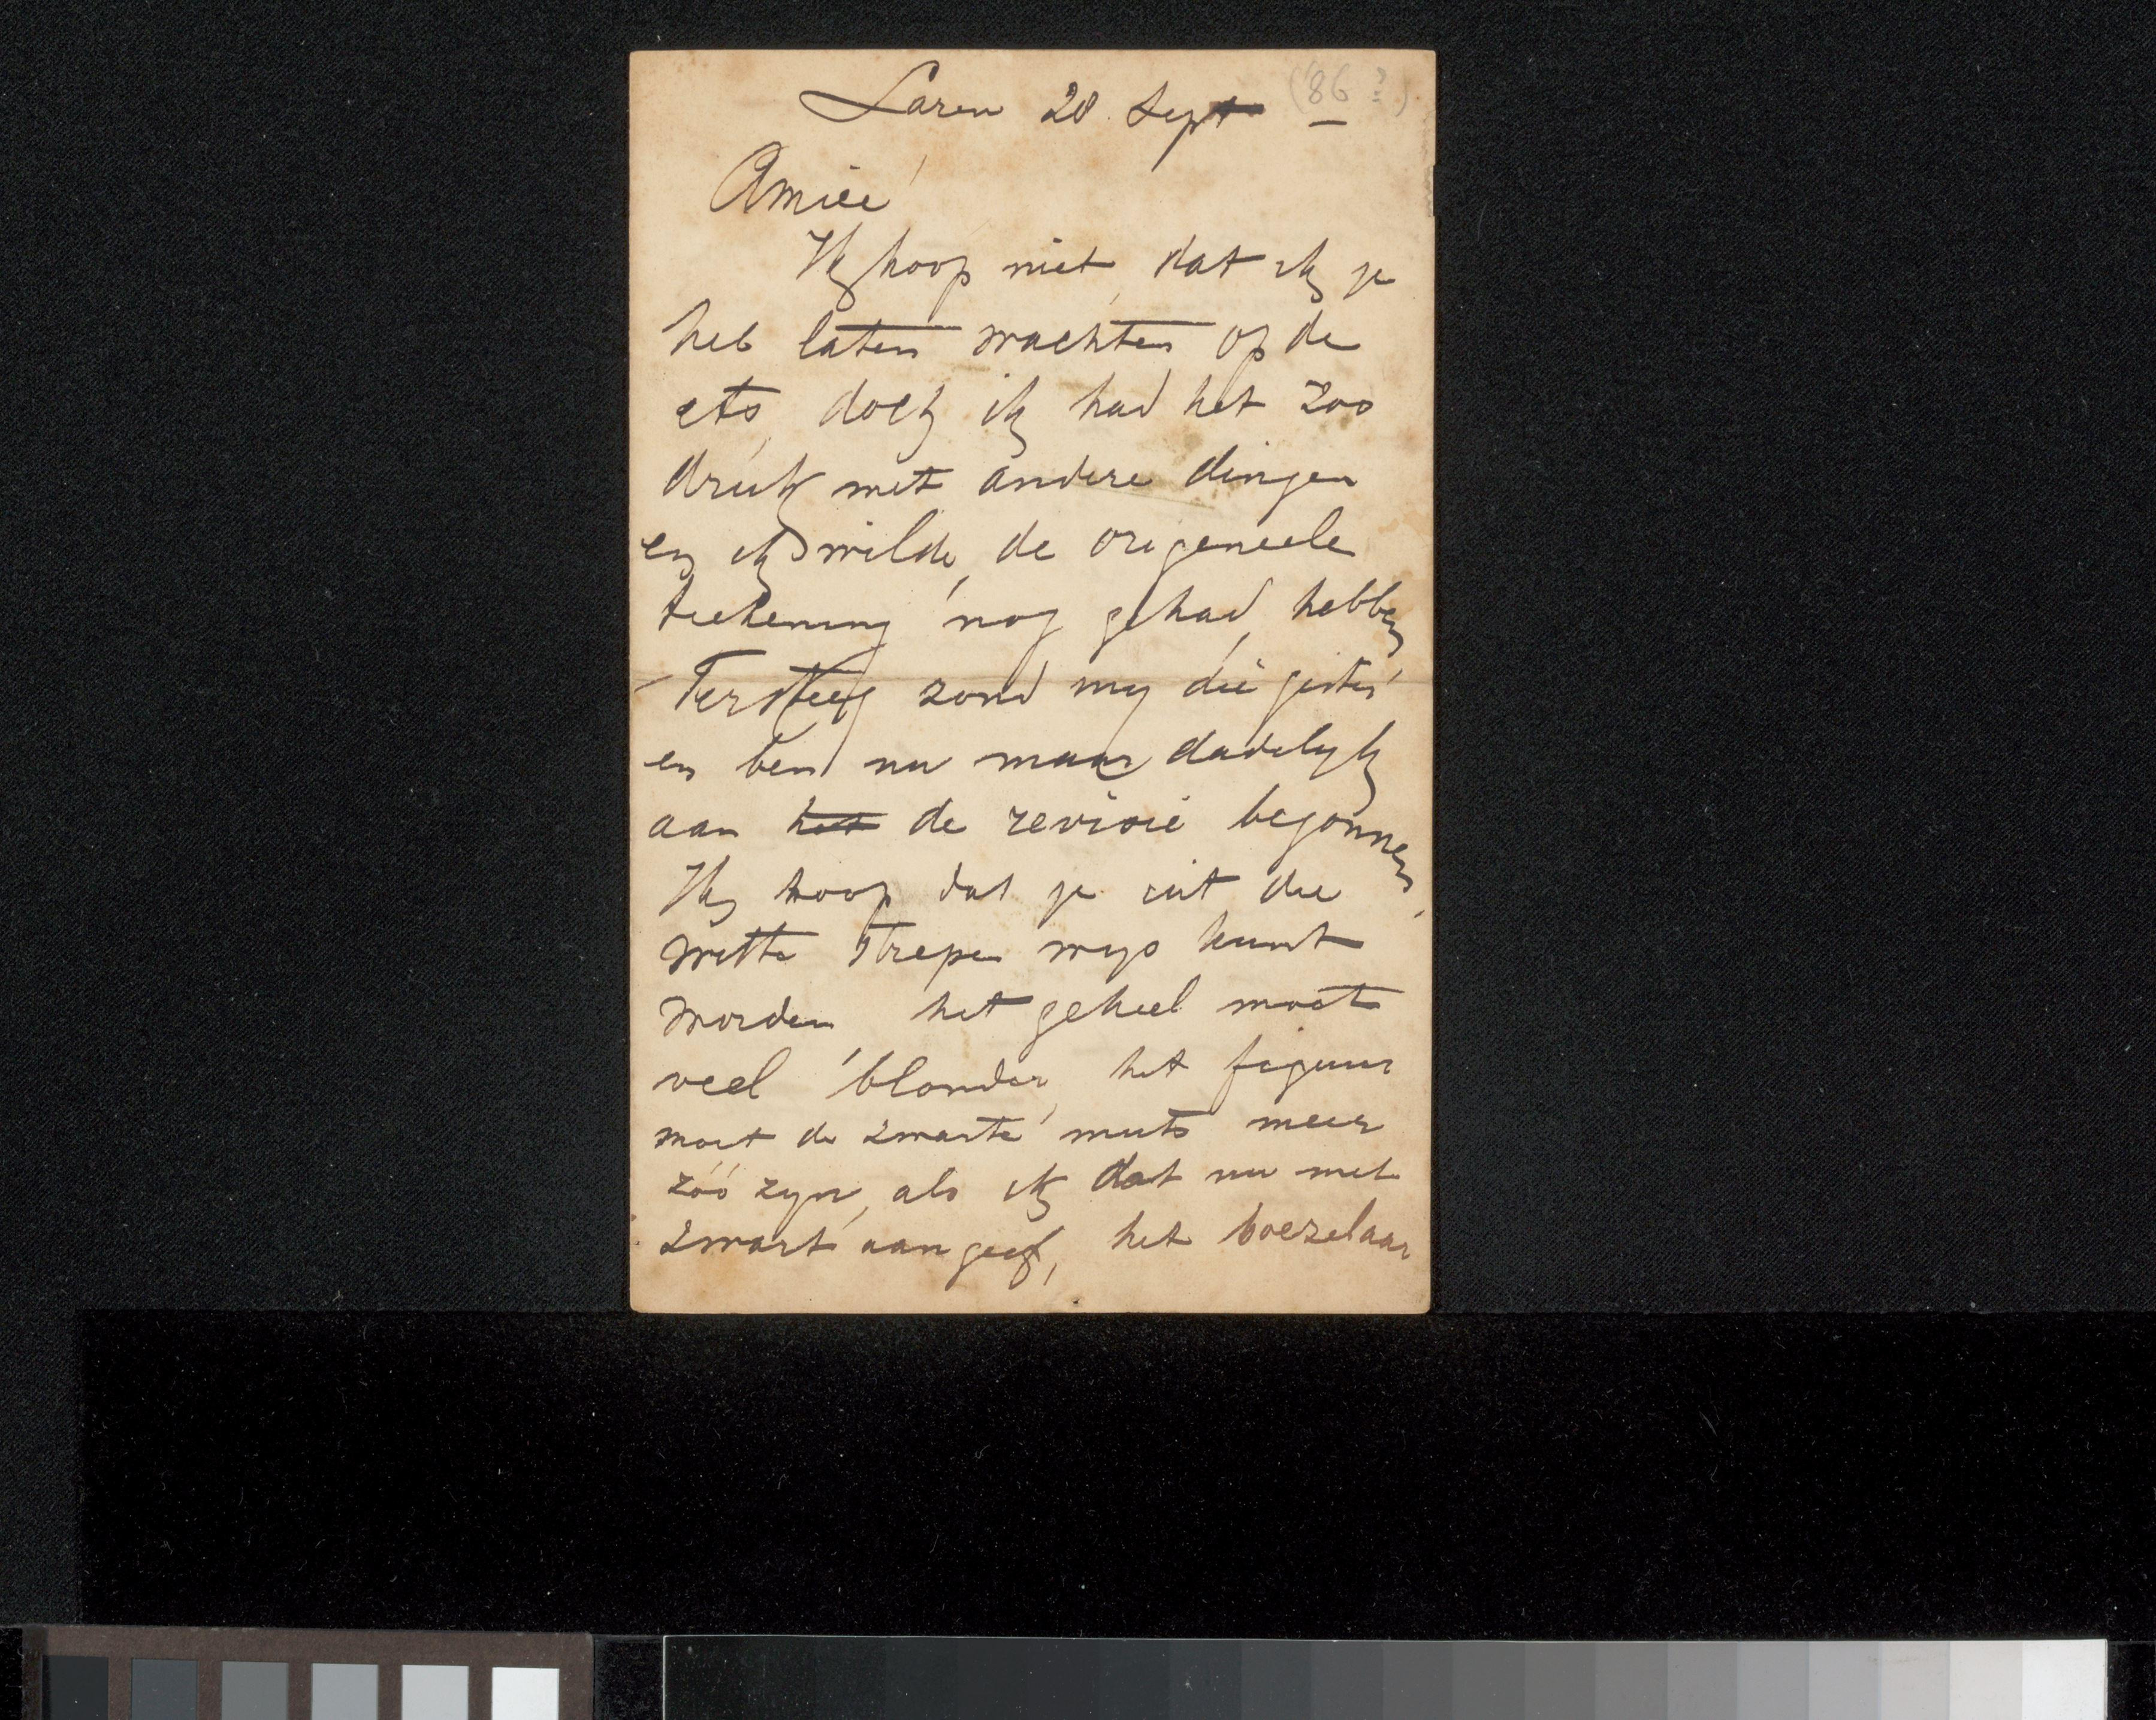 Laren 28 Sept ('86?)
Amice
Ik hoop niet, dat ik je
heb laten wachten op de
ets, doch ik had het zoo
druk met andere dingen
en ik wilde, de origeneele
teekening nog gehad, hebben
Tersteeg zond mij die gister
en ben nu maar dadelijk
aan het de revisie begonnen,
Ik hoop dat je uit die
witte strepen wijs kunt
worden, het geheel moet
veel blonder, het figuur
moet de zwarte muts meer
zóó zijn, als ik dat nu met
zwart aangeef, het boezelaar